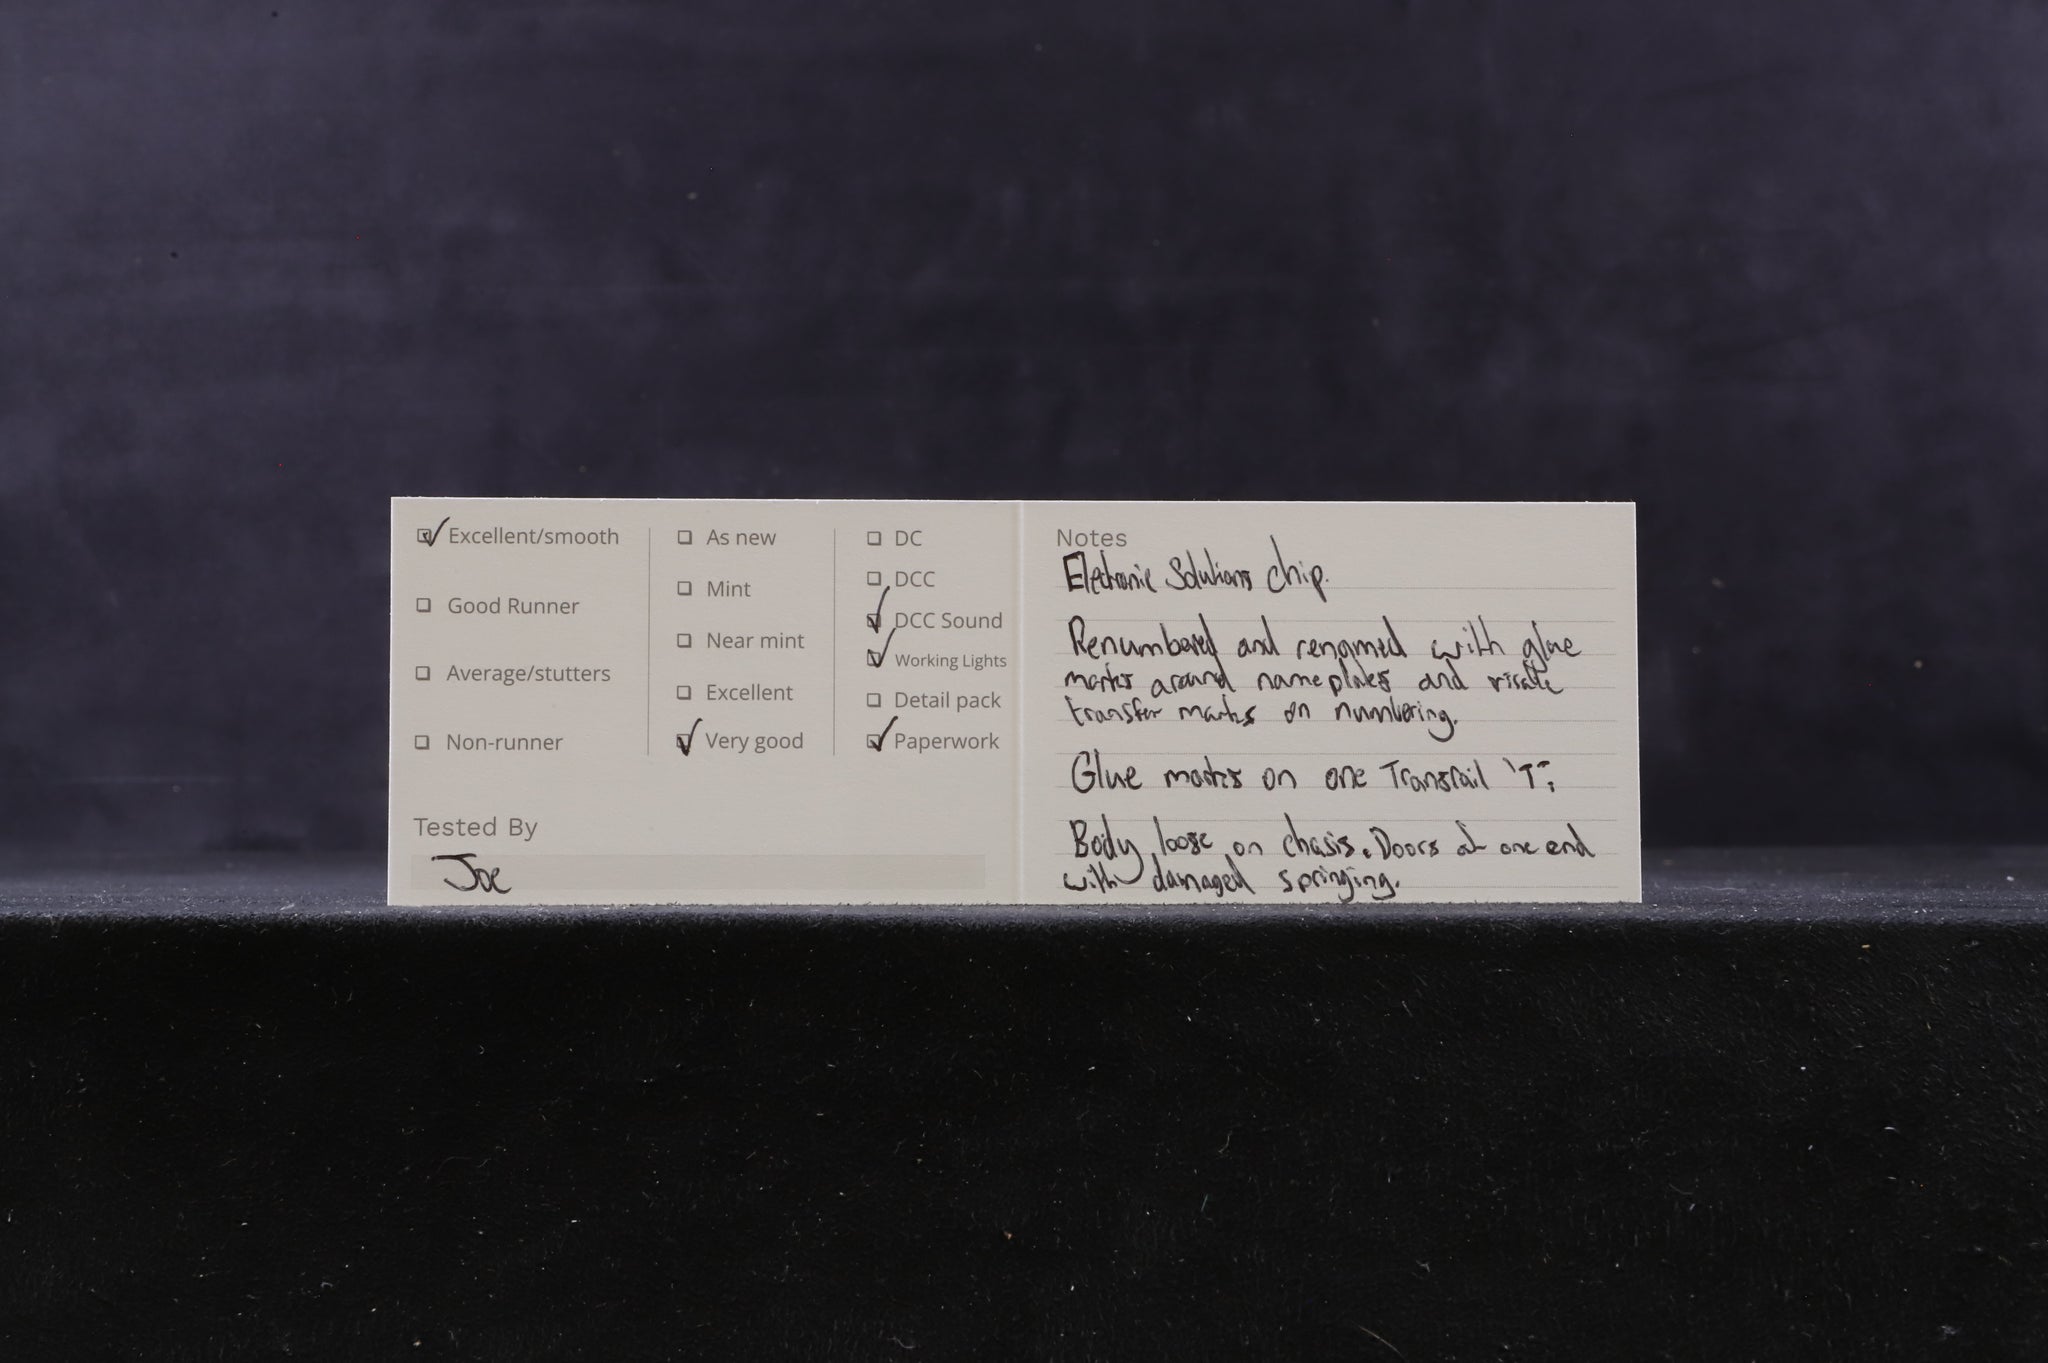 Excellent/smooth
Good Runner
Average/stutters
Non-runner
As new
Mint
Near mint
Excellent
Very good
DC
DCC
DCC Sound
Working Lights
Detail pack
Paperwork
Tested By
Joe
Notes
Electronic Solutions chip.
Renumbered and renamed with glue
marks around nameplates and visible
transfer marks on numbering.
Glue marks on one Transrail 'T'.
Body loose on chasis. Doors at one end
with damaged springing.